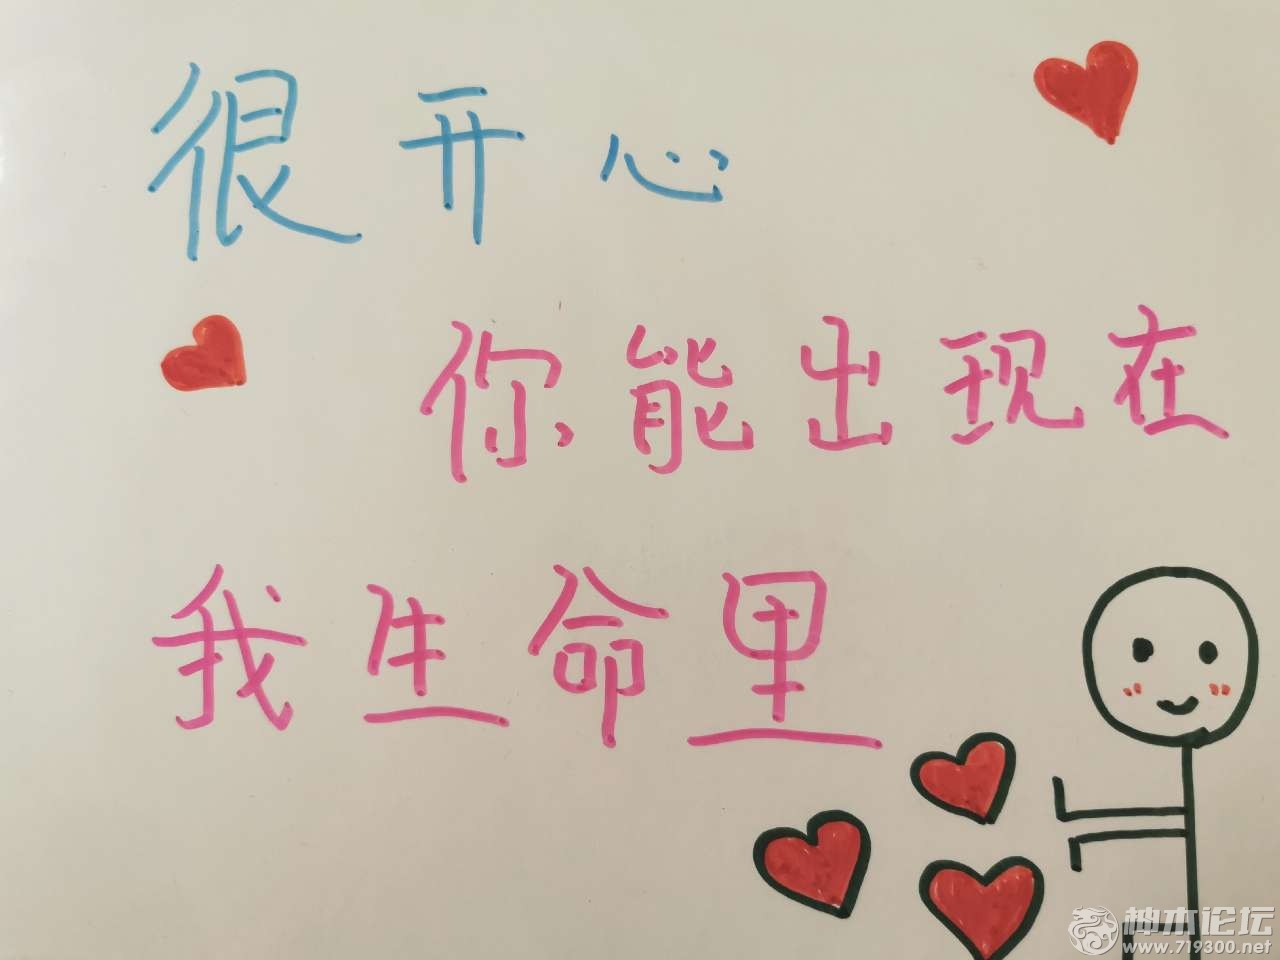 很开心
你能出现在
我生命里
神木论坛
www.719300.net